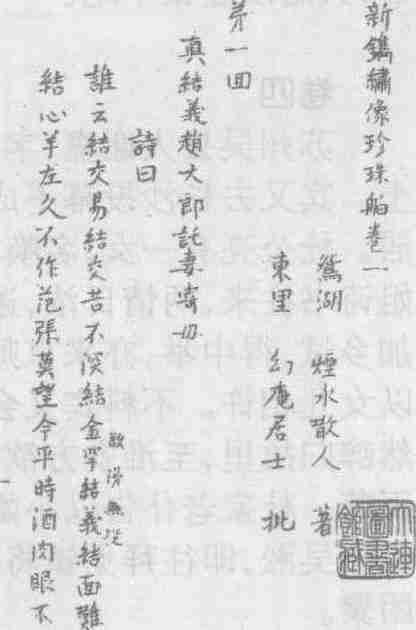 新鐫繡像珍珠舶卷一
鴛湖 煙水散人 著
東里 幻庵居士 批
第一回
真結義趙大郎託妻寄母
詩曰
誰云結交易結交苦不深結金罕結義結面難
結心羊左久不作范張莫望今平時酒肉眼不
大連圖書館藏